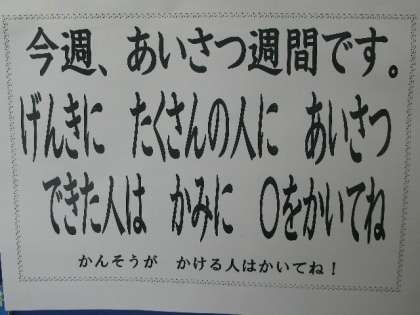 今週、あいさつ週間です。
げんきに たくさんの人に あいさつ
できた人は かみに 〇をかいてね
かんそうが かける人はかいてね！